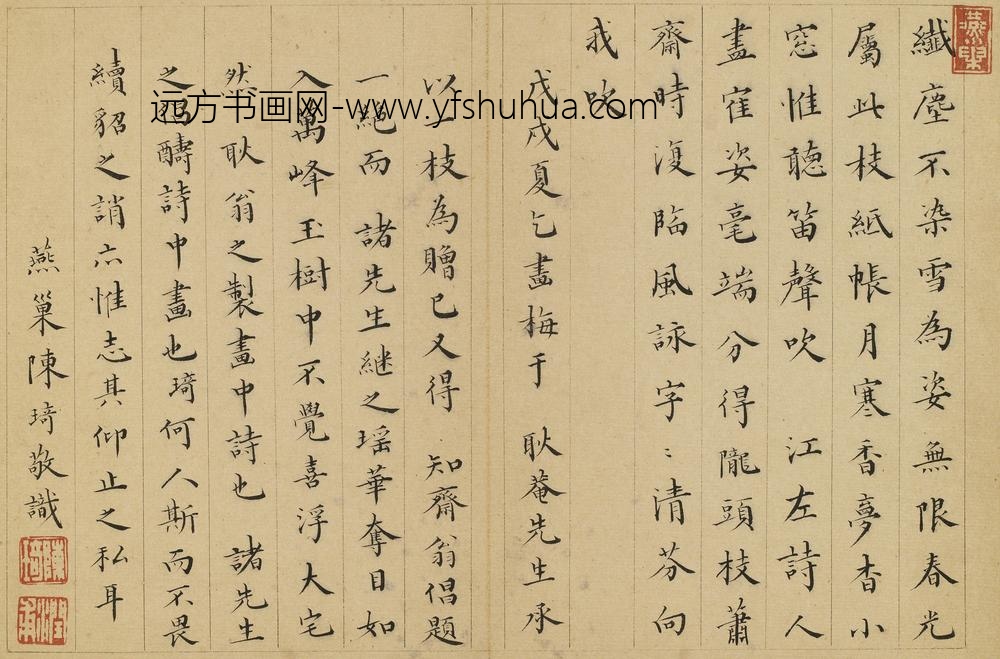 燕閒
纖塵不染雪為姿無限春光
屬此枝紙帳月寒香夢杳小
窓惟聽笛聲吹 江左詩人
盡寉姿毫端分得隴頭枝蕭
齋時復臨風詠字〻清芬向
我吹
戊戌夏乞畫梅于 耿菴先生承
以一枝為贈已又得 知齋翁倡題
一絕而 諸先生継之瑶華奪目如
入萬峰玉樹中不覺喜浮大宅
然耿翁之製畫中詩也 諸先生
之為醻詩中畫也琦何人斯而不畏
續貂之誚亦惟志其仰止之私耳
燕巢陳琦敬識
陳琦
远方书画网-www.yfshuhua.com